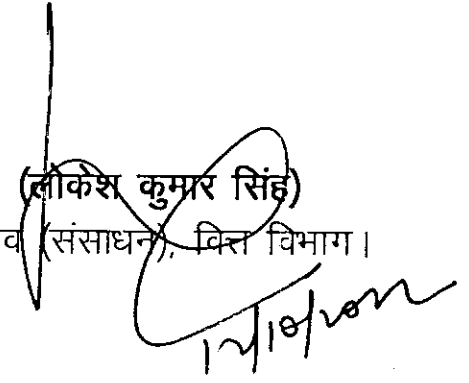 (लोकेश कुमार सिंह)
व (संसाधन), वित्त विभाग।